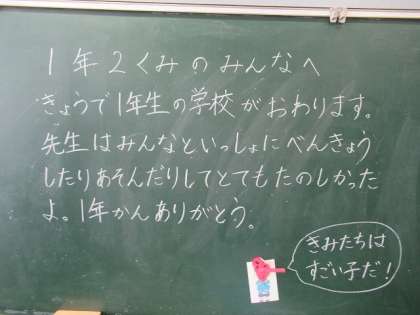 1年2くみのみんなへ
きょうで1年生の学校がおわります。
先生はみんなといっしょにべんきょう
したりあそんだりしてとてもたのしかった
よ。1年かんありがとう。
きみたちは
すごい子だ!